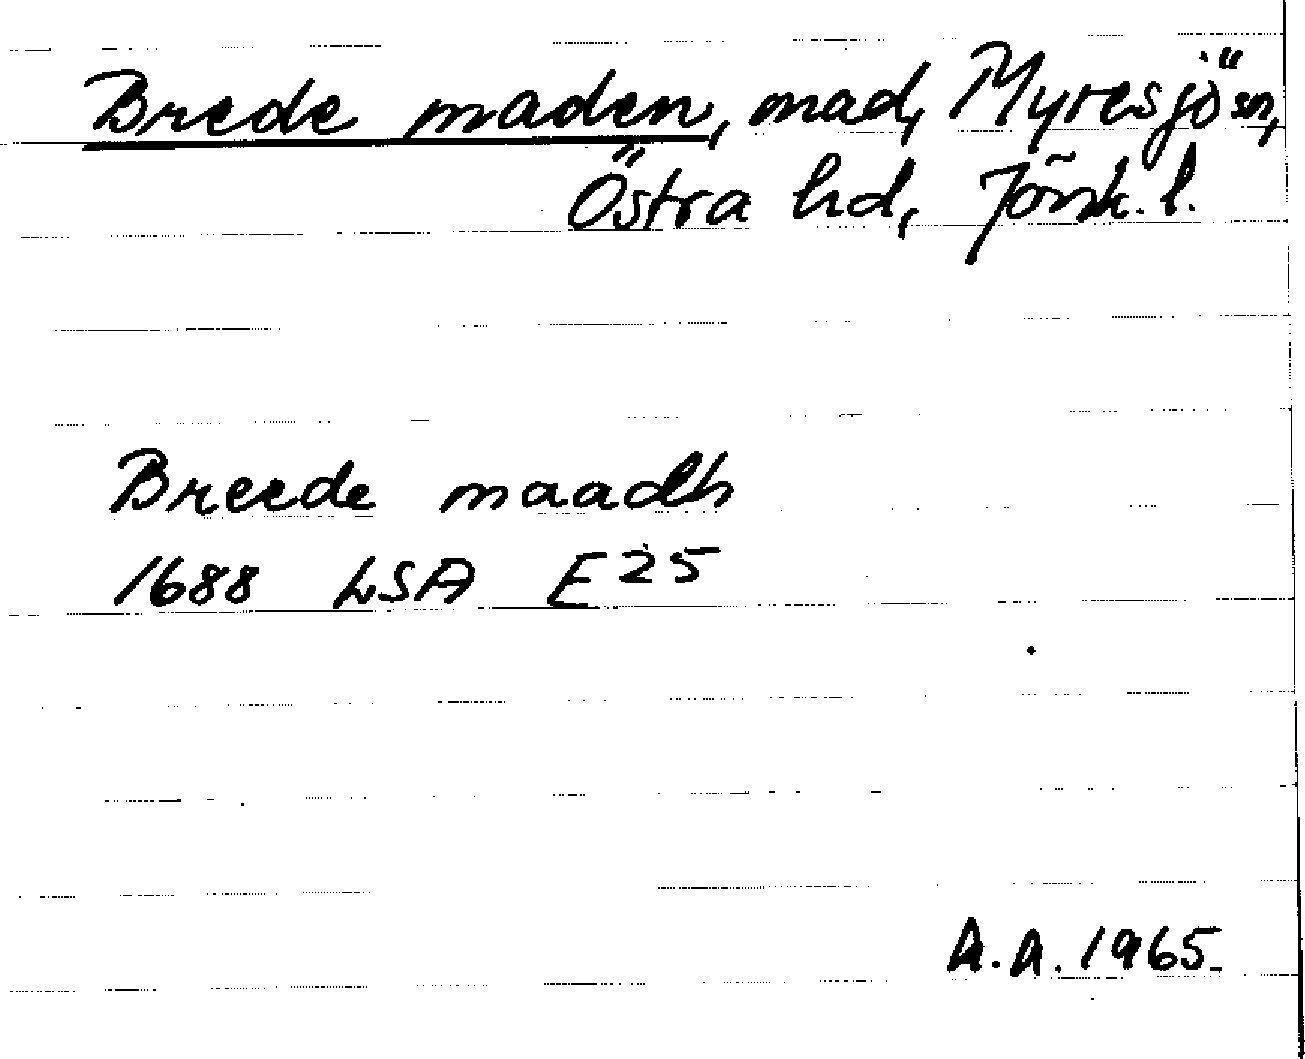 Brede maden, mad, Myresjö sn,
Östra hd, Jönk. l.
Breede maadh
1688 LSA E25
A.A. 1965.